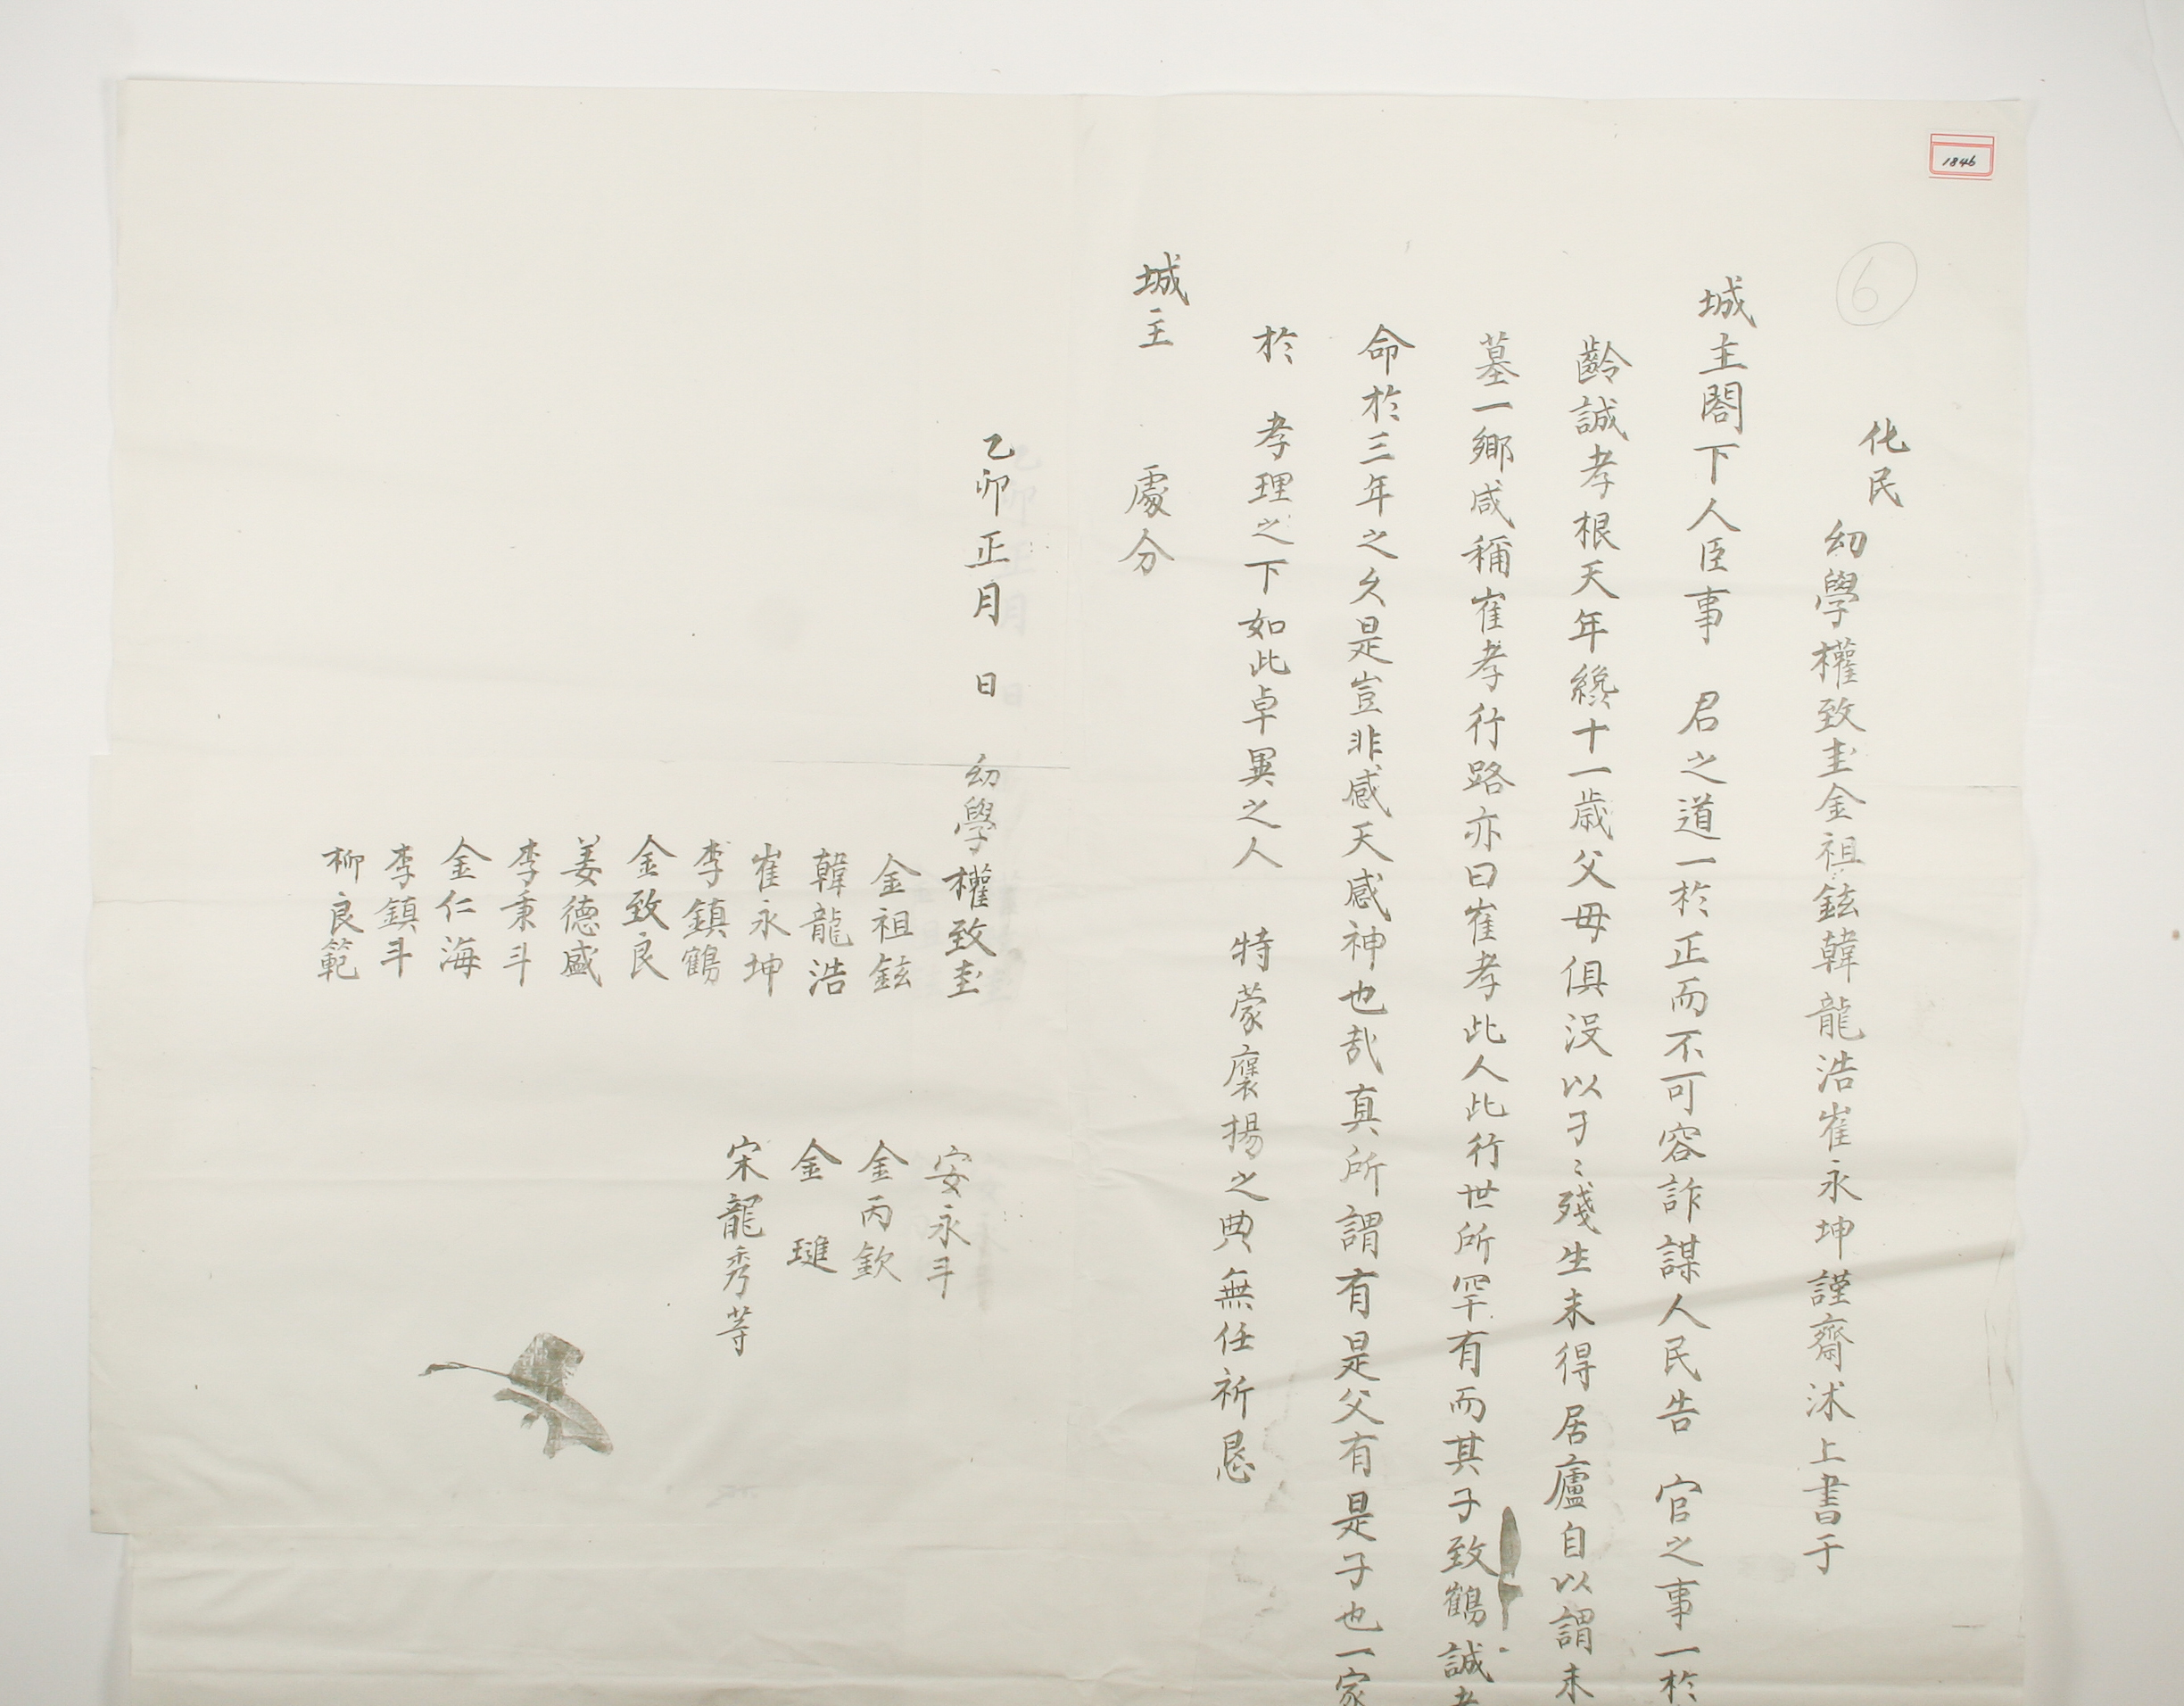 1846
6
化民
幼學權致圭金祖鉉韓龍浩崔永坤謹齋沐上書于
城主閤下人臣事 君之道一於正而不可容詐謀人民告 官之事一於
齡誠孝根天年纔十一歲父母俱沒以孑〻殘生未得居廬自以謂未
墓一鄕咸稱崔孝行路亦曰崔孝此人此行世所罕有而其子致鶴誠孝
命於三年之久是豈非感天感神也哉眞所謂有是父有是子也一家
於 孝理之下如此卓異之人 特蒙褒揚之典無任祈恳
城主 處分
乙卯正月 日 幼學權致圭
金祖鉉
韓龍浩
崔永坤
李鎭鶴
金致良
姜德盛
李秉斗
金仁海
李鎭斗
柳良範
安永斗
金丙欽
金 璡
宋龍秀等